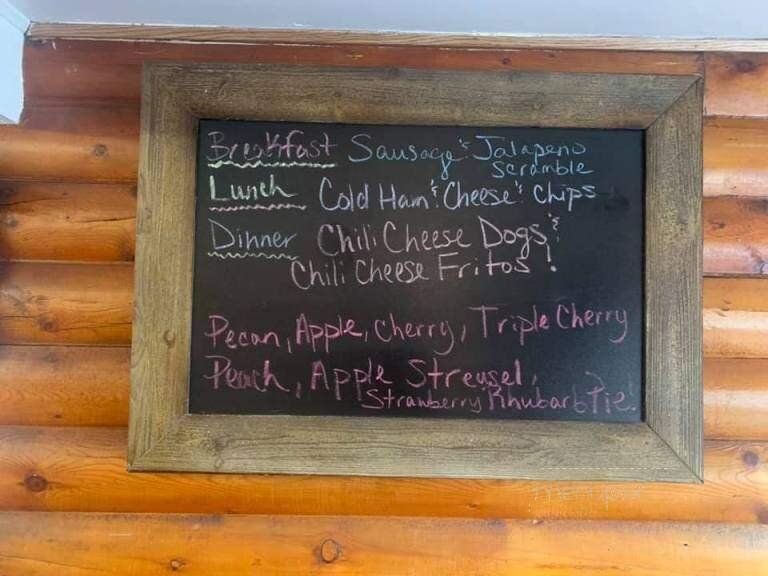 Breakfast Sausage & Jalapeno
Scramble
Lunch Cold Ham & Cheese & Chips
Dinner Chili Cheese Dogs &
Chili Cheese Fritos!
Pecan, Apple, Cherry, Triple Cherry
Peach, Apple Streusel,
Strawberry Rhubarb Pie.